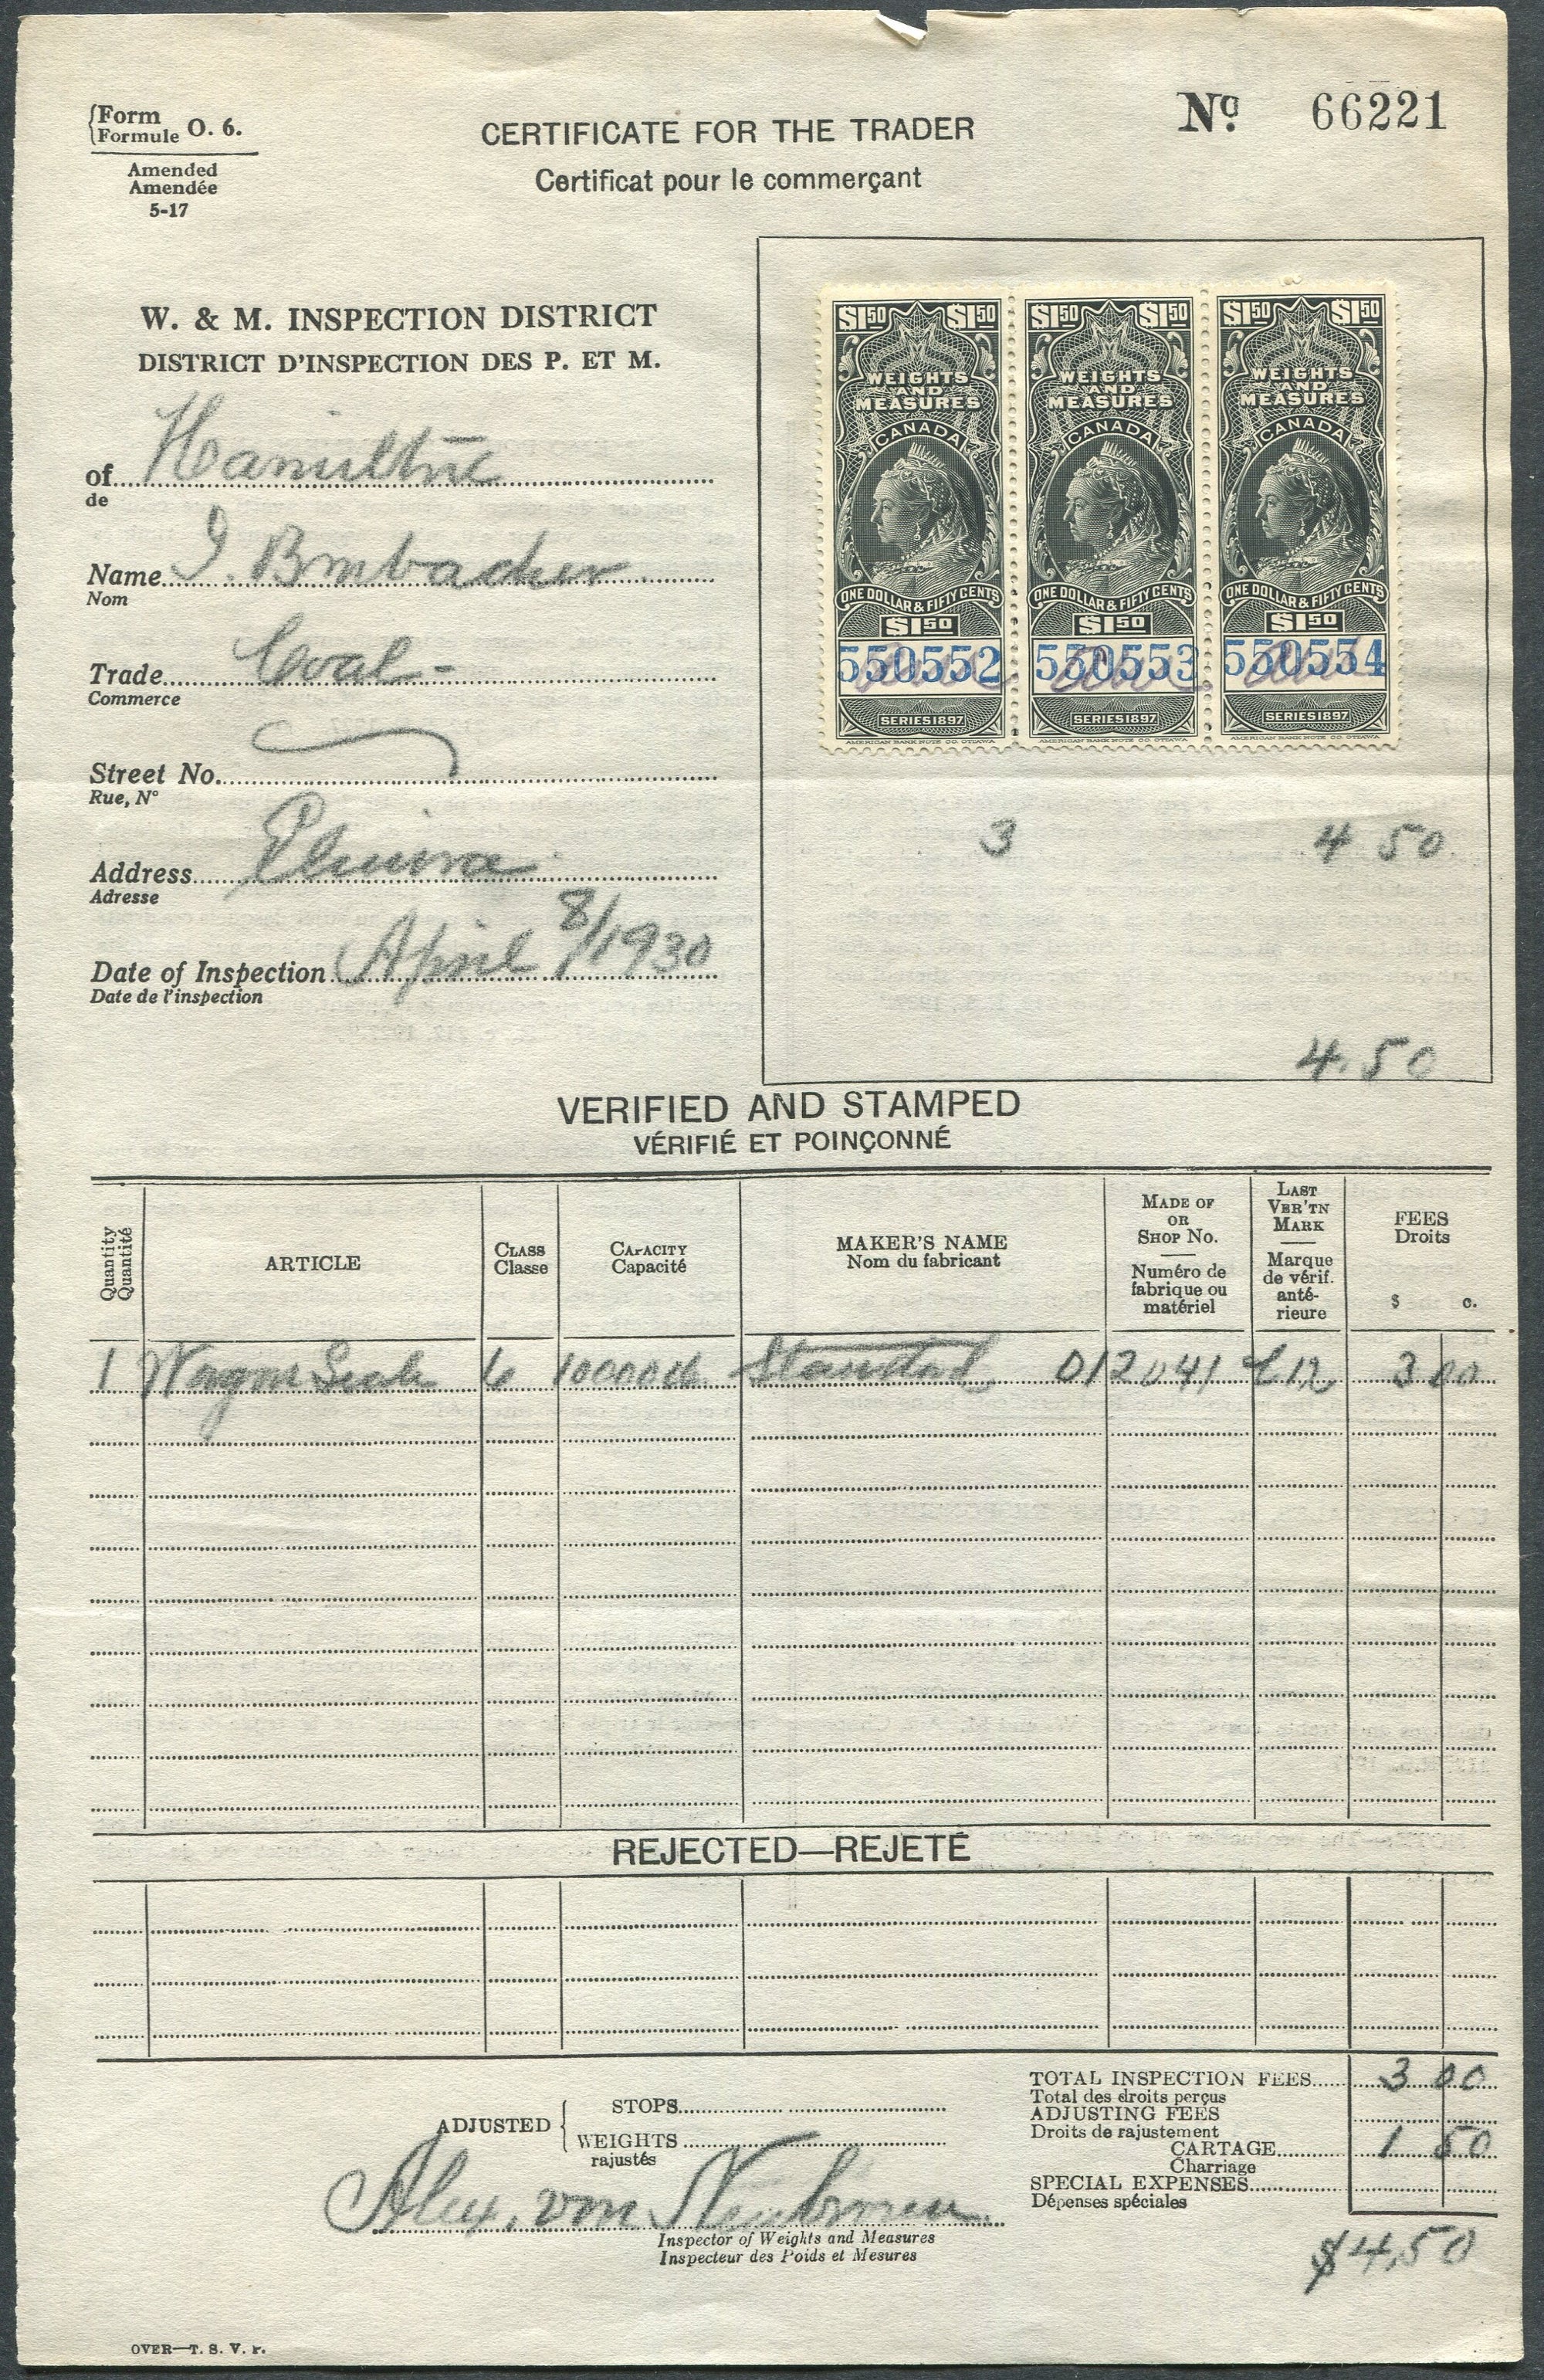 Form
Formule O. 6.
Amended
Amendée
5-17
CERTIFICATE FOR THE TRADER
Certificat pour le commerçant
Nº 66221
W. & M. INSPECTION DISTRICT
DISTRICT D'INSPECTION DES P. ET M.
of Hamilton
de
Name
Nom
Trade Coal -
Commerce
Street No.
Rue, Nº
Address Elmira
Adresse
Date of Inspection April 8/1930
Date de l'inspection
$1.50 $1.50 $1.50 $1.50 $1.50 $1.50
WEIGHTS AND MEASURES WEIGHTS AND MEASURES WEIGHTS AND MEASURES
CANADA CANADA CANADA
ONE DOLLAR & FIFTY CENTS ONE DOLLAR & FIFTY CENTS ONE DOLLAR & FIFTY CENTS
$1.50 $1.50 $1.50
550552 550553 550554
SERIES 1897 SERIES 1897 SERIES 1897
AMERICAN BANK NOTE CO. OTTAWA AMERICAN BANK NOTE CO. OTTAWA AMERICAN BANK NOTE CO. OTTAWA
3 4 50
4.50
VERIFIED AND STAMPED
VÉRIFIÉ ET POINÇONNÉ
Quantity
Quantité
ARTICLE
CLASS
Classe
CAPACITY
Capacité
MAKER'S NAME
Nom du fabricant
MADE OF
OR
SHOP No.
Numéro de
fabrique ou
matériel
LAST
VER'TN
MARK
Marque
de vérif.
anté-
rieure
FEES
Droits
$ c.
1 Wagon Scale 6 10000 lb Standard 012041 3 00
REJECTED—REJETÉ
ADJUSTED
STOPS
WEIGHTS
rajustés
TOTAL INSPECTION FEES 3 00
Total des droits perçus
ADJUSTING FEES
Droits de rajustement
CARTAGE 1 50
Charriage
SPECIAL EXPENSES
Dépenses spéciales
$4.50
Alex. von
Inspector of Weights and Measures
Inspecteur des Poids et Mesures
OVER—T. S. V. P.